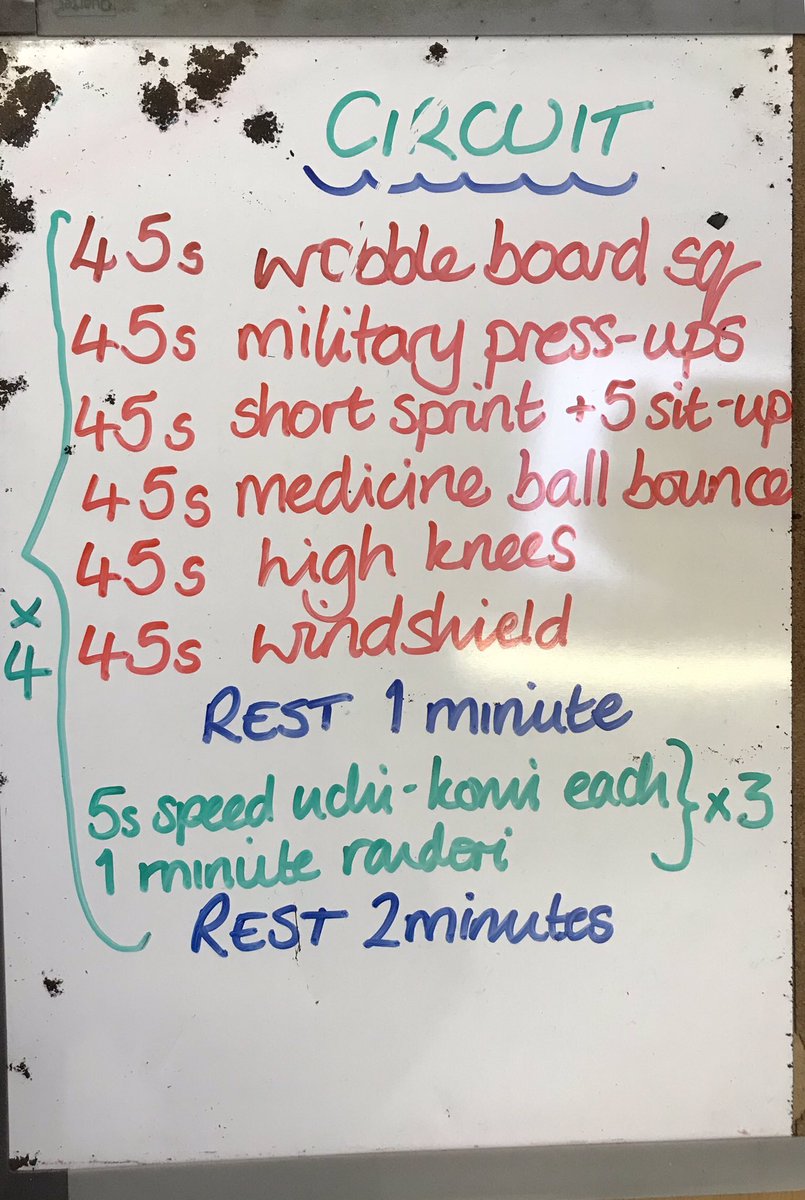 CIRCUIT
45s wobble board sq
45s military press-ups
45s short sprint +5 sit-up
45s medicine ball bounce
45s high knees
45s windshield
x
4
REST 1 minute
5s speed uchi-komi each } x3
1 minute randori
REST 2minutes